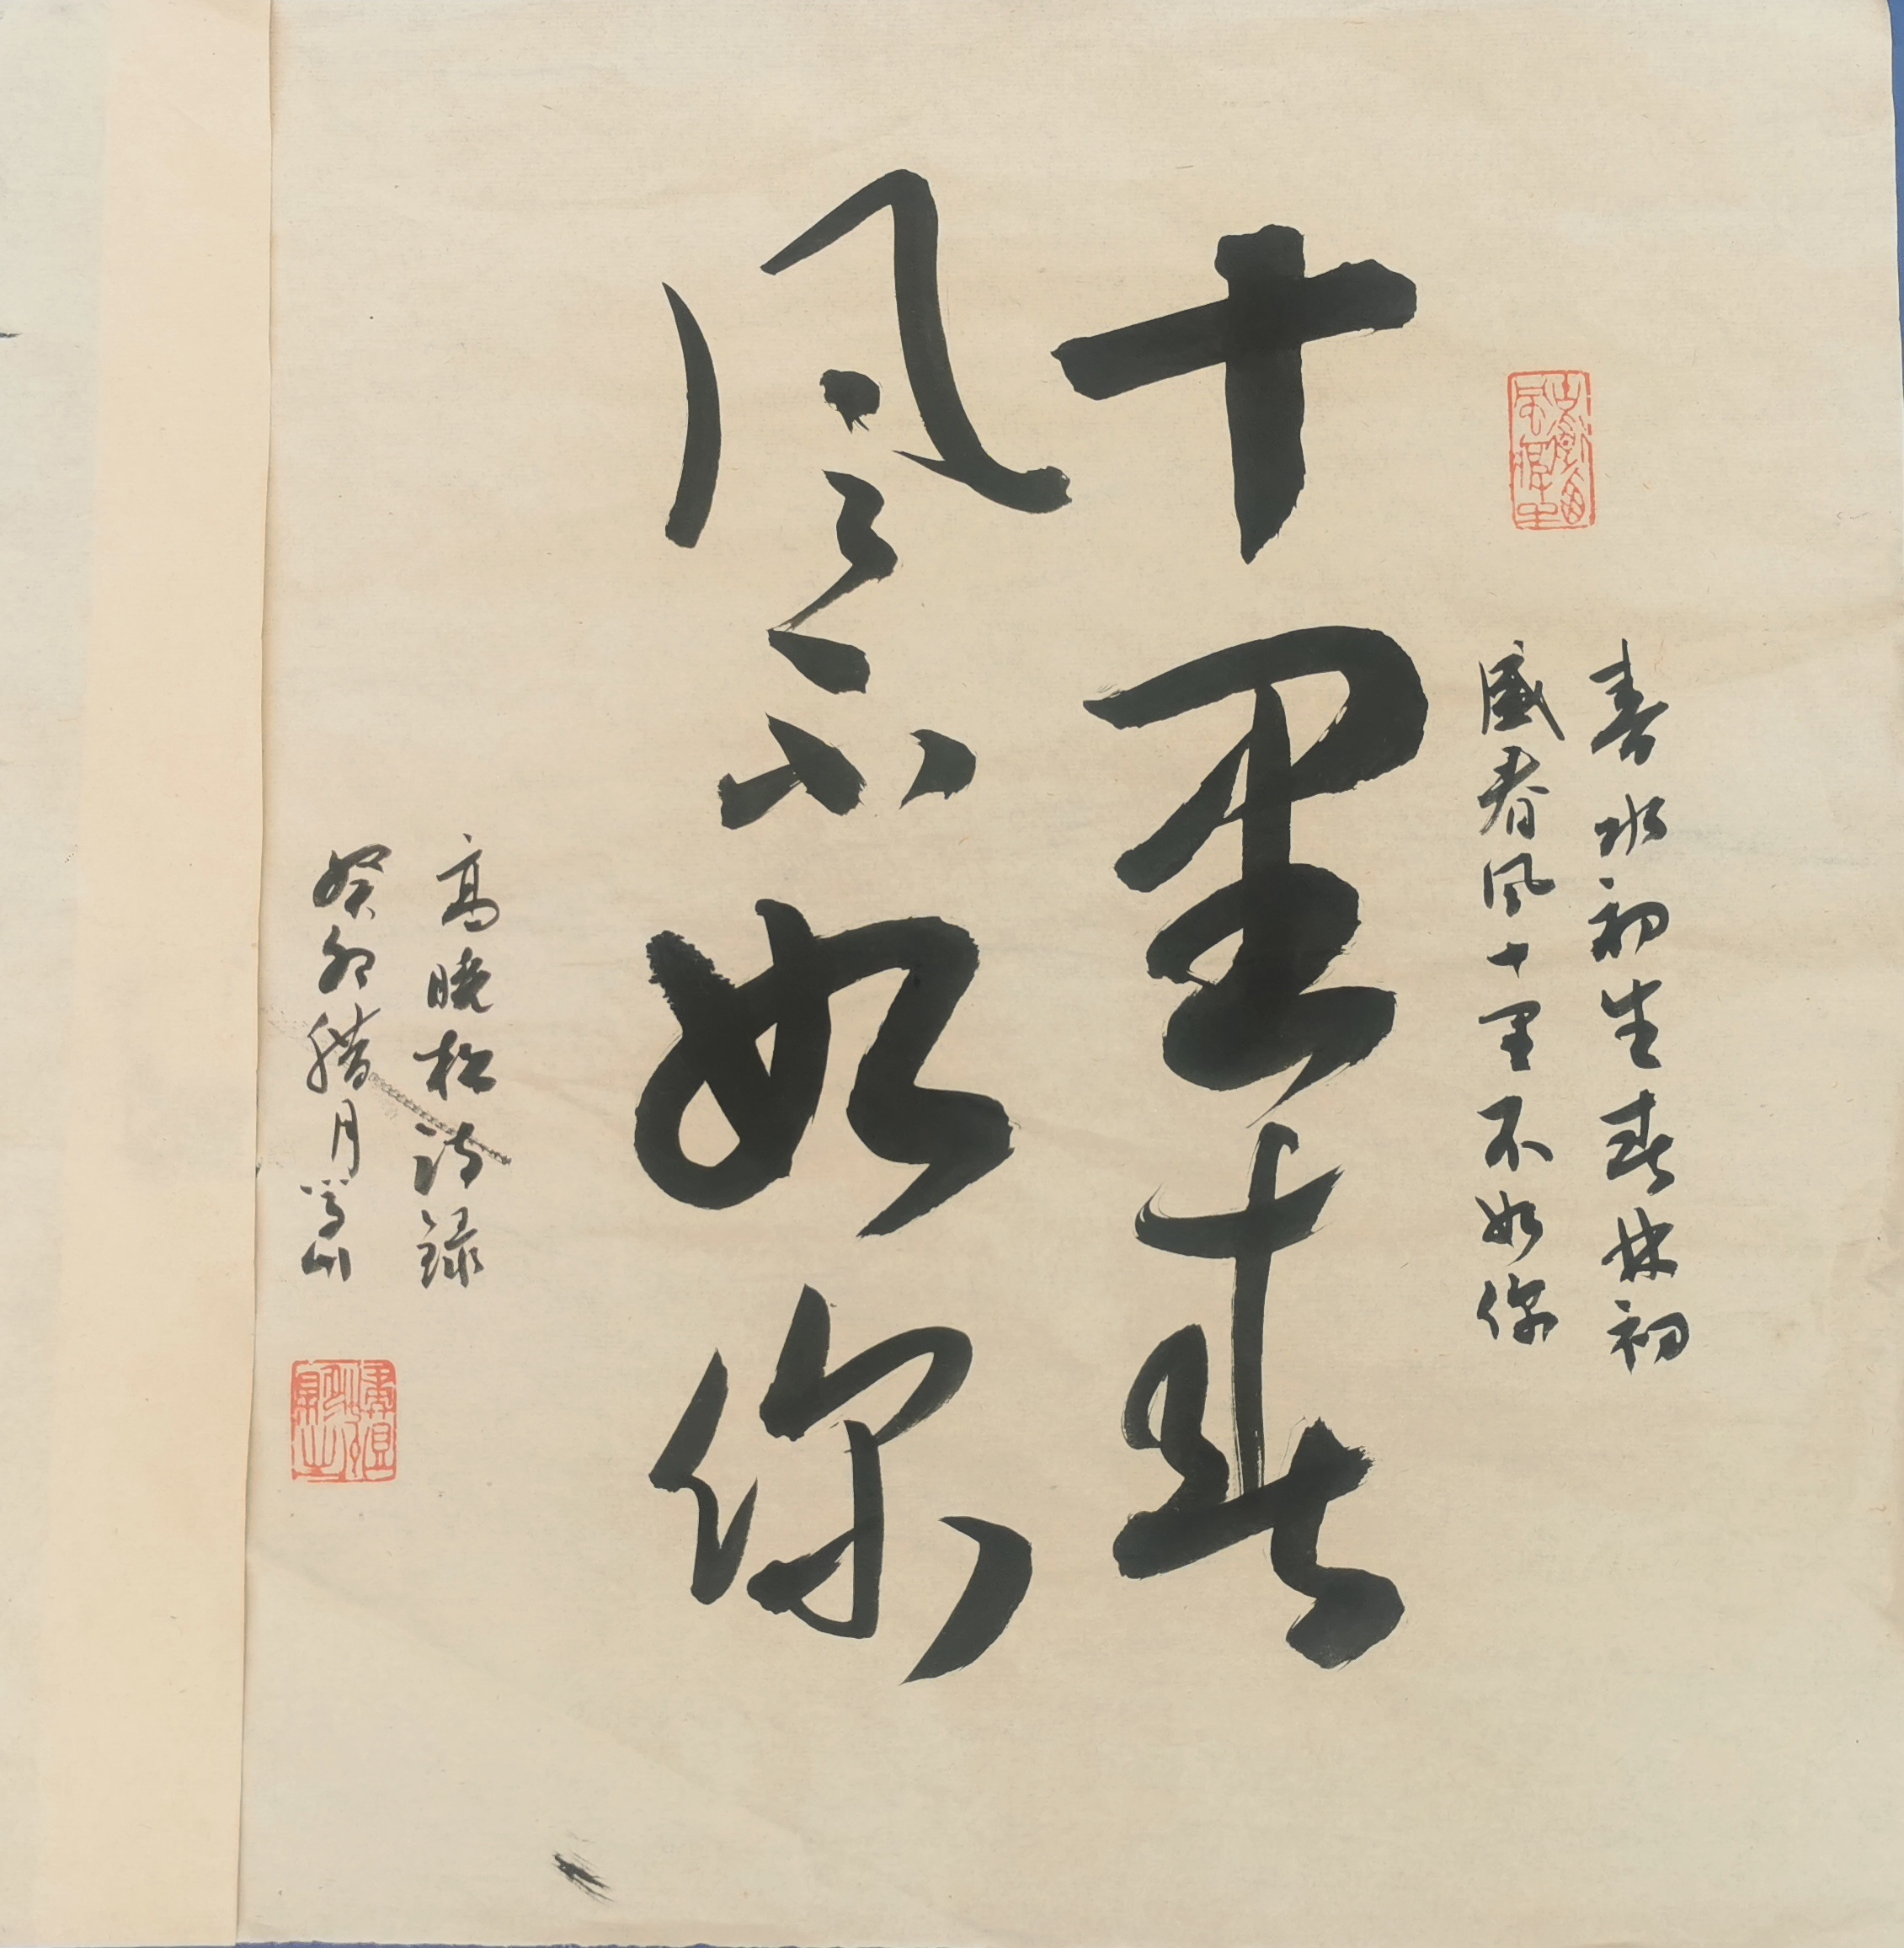 春水初生春林初
盛春风十里不如你
十里春
风不如你
高晓松诗录
癸卯腊月